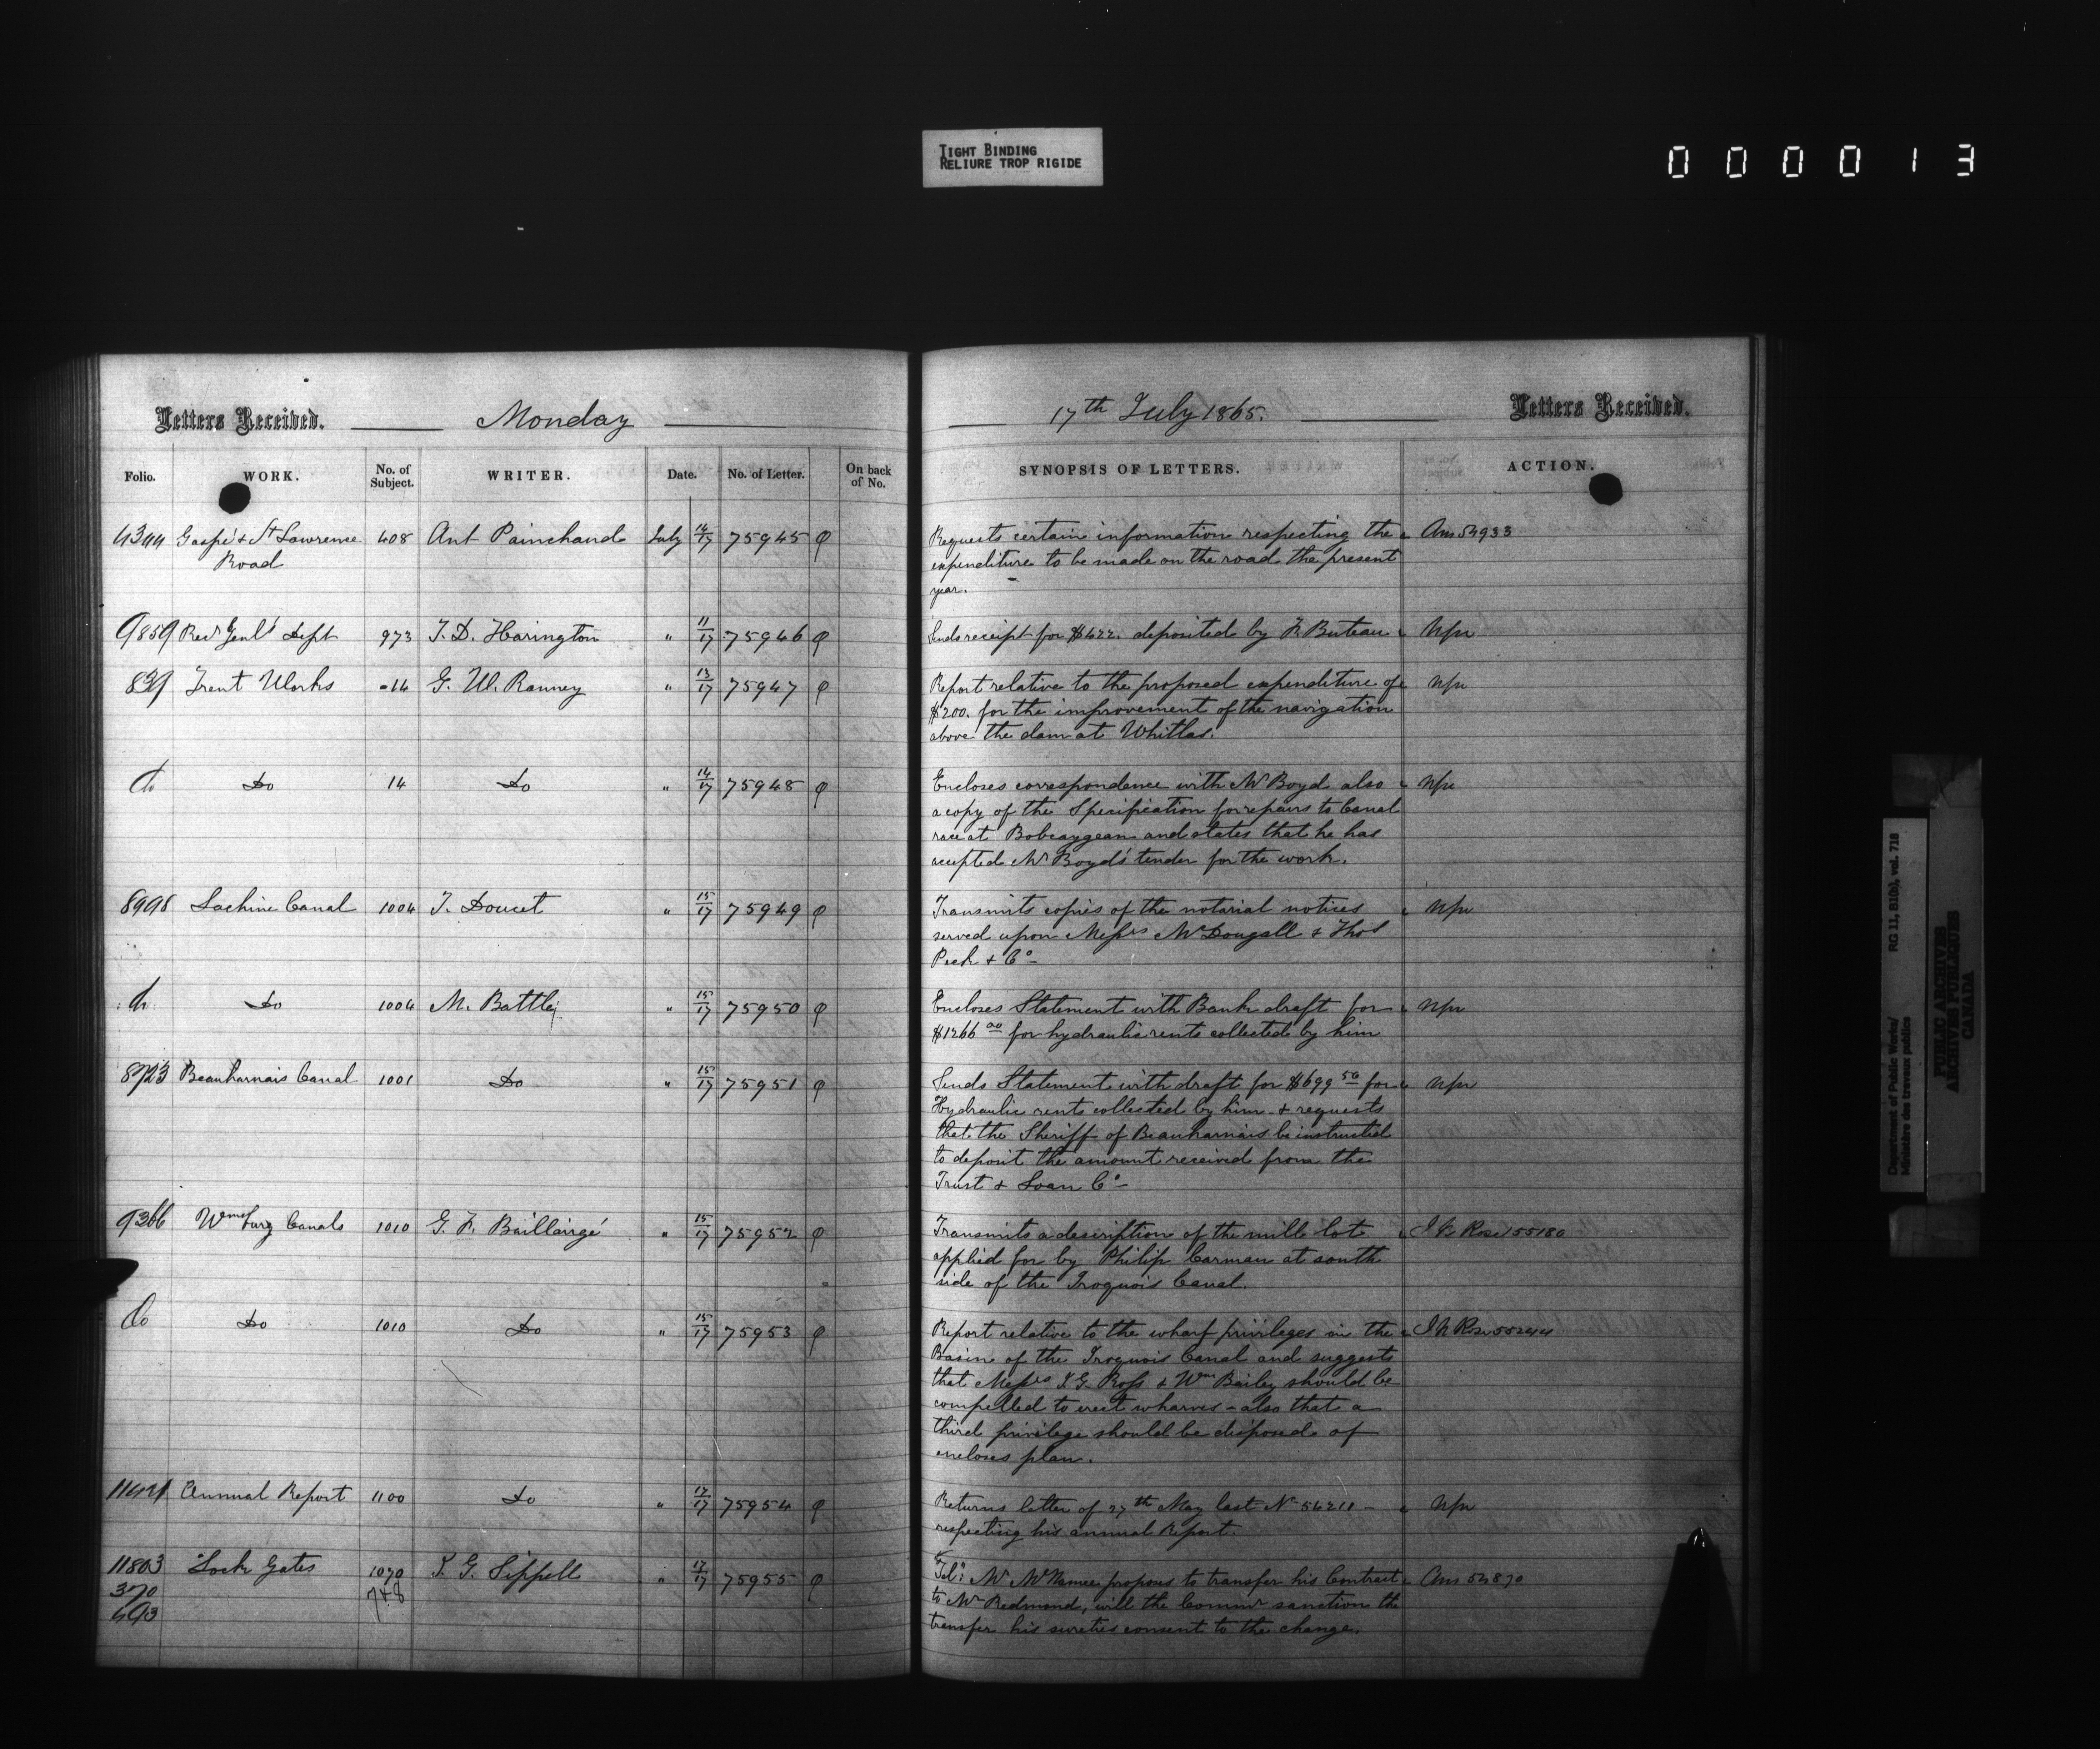 TIGHT BINDING
RELIURE TROP RIGIDE
000013
Letters Received. Monday
Folio. WORK. No. of Subject. WRITER. Date. No. of Letter. On back of No.
4344 Gaspé & St Lawrence 408 Ant Painchaud July 14/17 75945
Road
9859 Recr Genl's Dept 973 T. D. Harington " 11/17 75946
839 Trent Works 14 G. W. Ranney " 13/17 75947
do Do 14 Do " 14/17 75948
8998 Lachine Canal 1004 T. Doucet " 15/17 75949
do Do 1004 M. Battle " 15/17 75950
8723 Beauharnais Canal 1001 Do " 15/17 75951
9366 Wmsburg Canals 1010 G. F. Baillairgé " 15/17 75952
Do Do 1010 Do " 15/17 75953
Annual Report 1100 Do " 17/17 75954
11803 Lock Gates 1070 J. G. Sippell " 17/17 75955
370 7+8
493
17th July 1865. Letters Received.
SYNOPSIS OF LETTERS. ACTION.
Requests certain information respecting the Ans 54933
expenditure to be made on the road the present
year.
Sends receipt for $422. deposited by F. Buteau Npn
Report relative to the proposed expenditure of Npn
$200. for the improvement of the navigation
above the dam at Whitlas.
Encloses correspondence with Mr Boyd also Npn
a copy of the Specification for repairs to Canal
race at Bobcaygean and states that he has
accepted Mr Boyd's tender for the work.
Transmits copies of the notarial notices Npn
served upon Messrs McDougall & Thos
Peck & Co
Encloses Statement with Bank draft for Npn
$1266 00 for hydraulic rents collected by him
Sends Statement with draft for $699 50 for Npn
Hydraulic rents collected by him & requests
that the Sheriff of Beauharnais be instructed
to deposit the amount received from the
Trust & Loan Co
Transmits a description of the mill lot 55180
applied for by Philip Carman at south
side of the Iroquois Canal.
Report relative to the wharf privileges in the
Basin of the Iroquois Canal and suggests
that Messrs J. G. Ross & Wm Bailey should be
compelled to erect wharves - also that a
third privilege should be disposed of
encloses plan.
Returns letter of 27th May last No 54211 - Npn
respecting his annual Report.
Tel: Mr McNamee proposes to transfer his Contract Ans 54870
to Mr Redmond, will the Commr sanction the
transfer his sureties consent to the change.
Department of Public Works/ RG 11, B1(b), vol. 718
Ministère des travaux publics
PUBLIC ARCHIVES
ARCHIVES PUBLIQUES
CANADA